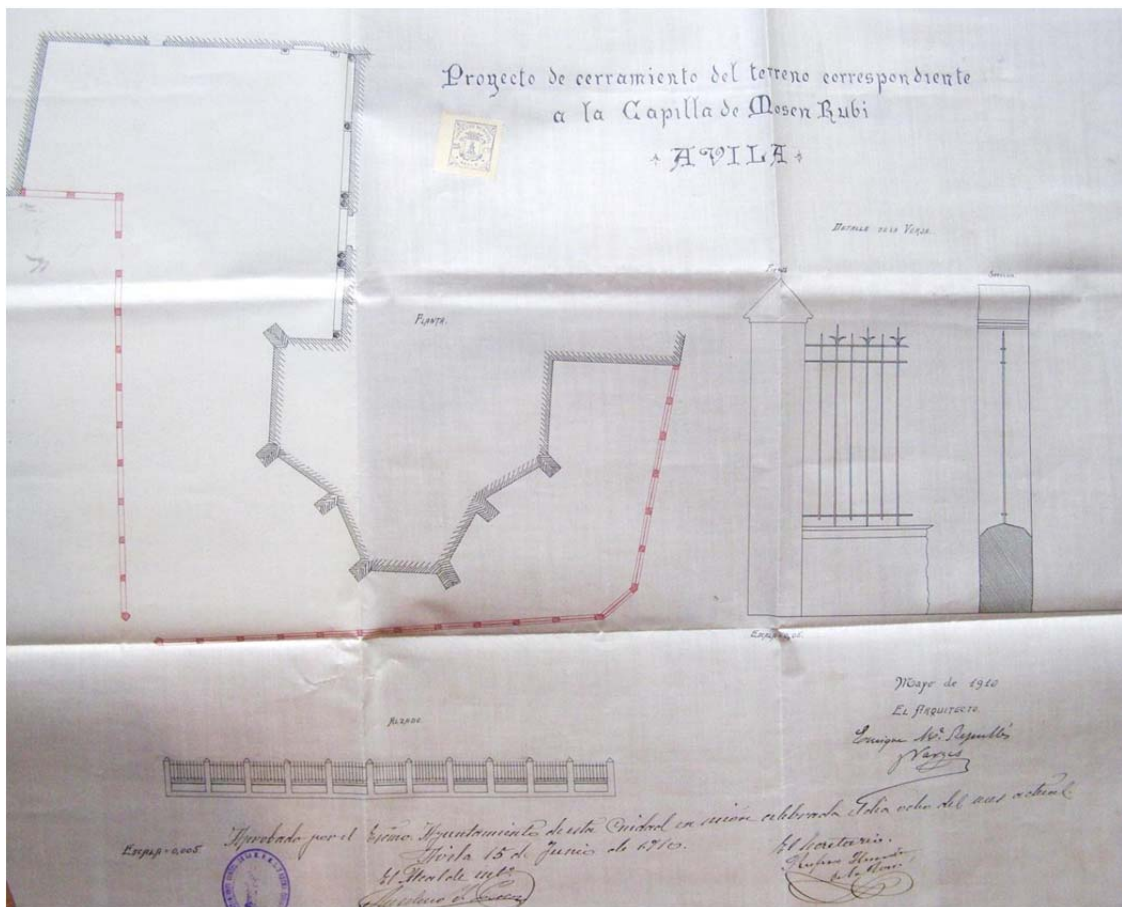 Proyecto de cerramiento del terreno correspondiente
a la Capilla de Mosen Rubi
AVILA
DETALLE DE LA VERJA.
SECCION
PLANTA.
ESCALA = 0,05.
Mayo de 1910
EL ARQUITECTO
Enrique Mª. Repullés
y Vargas
ALZADO
ESCALA = 0,005.
Aprobado por el Excmo. Ayuntamiento de esta Ciudad en sesión celebrada el día ocho del mes actual
Avila 15 de Junio de 1910.
El Alcalde
El Secretario.